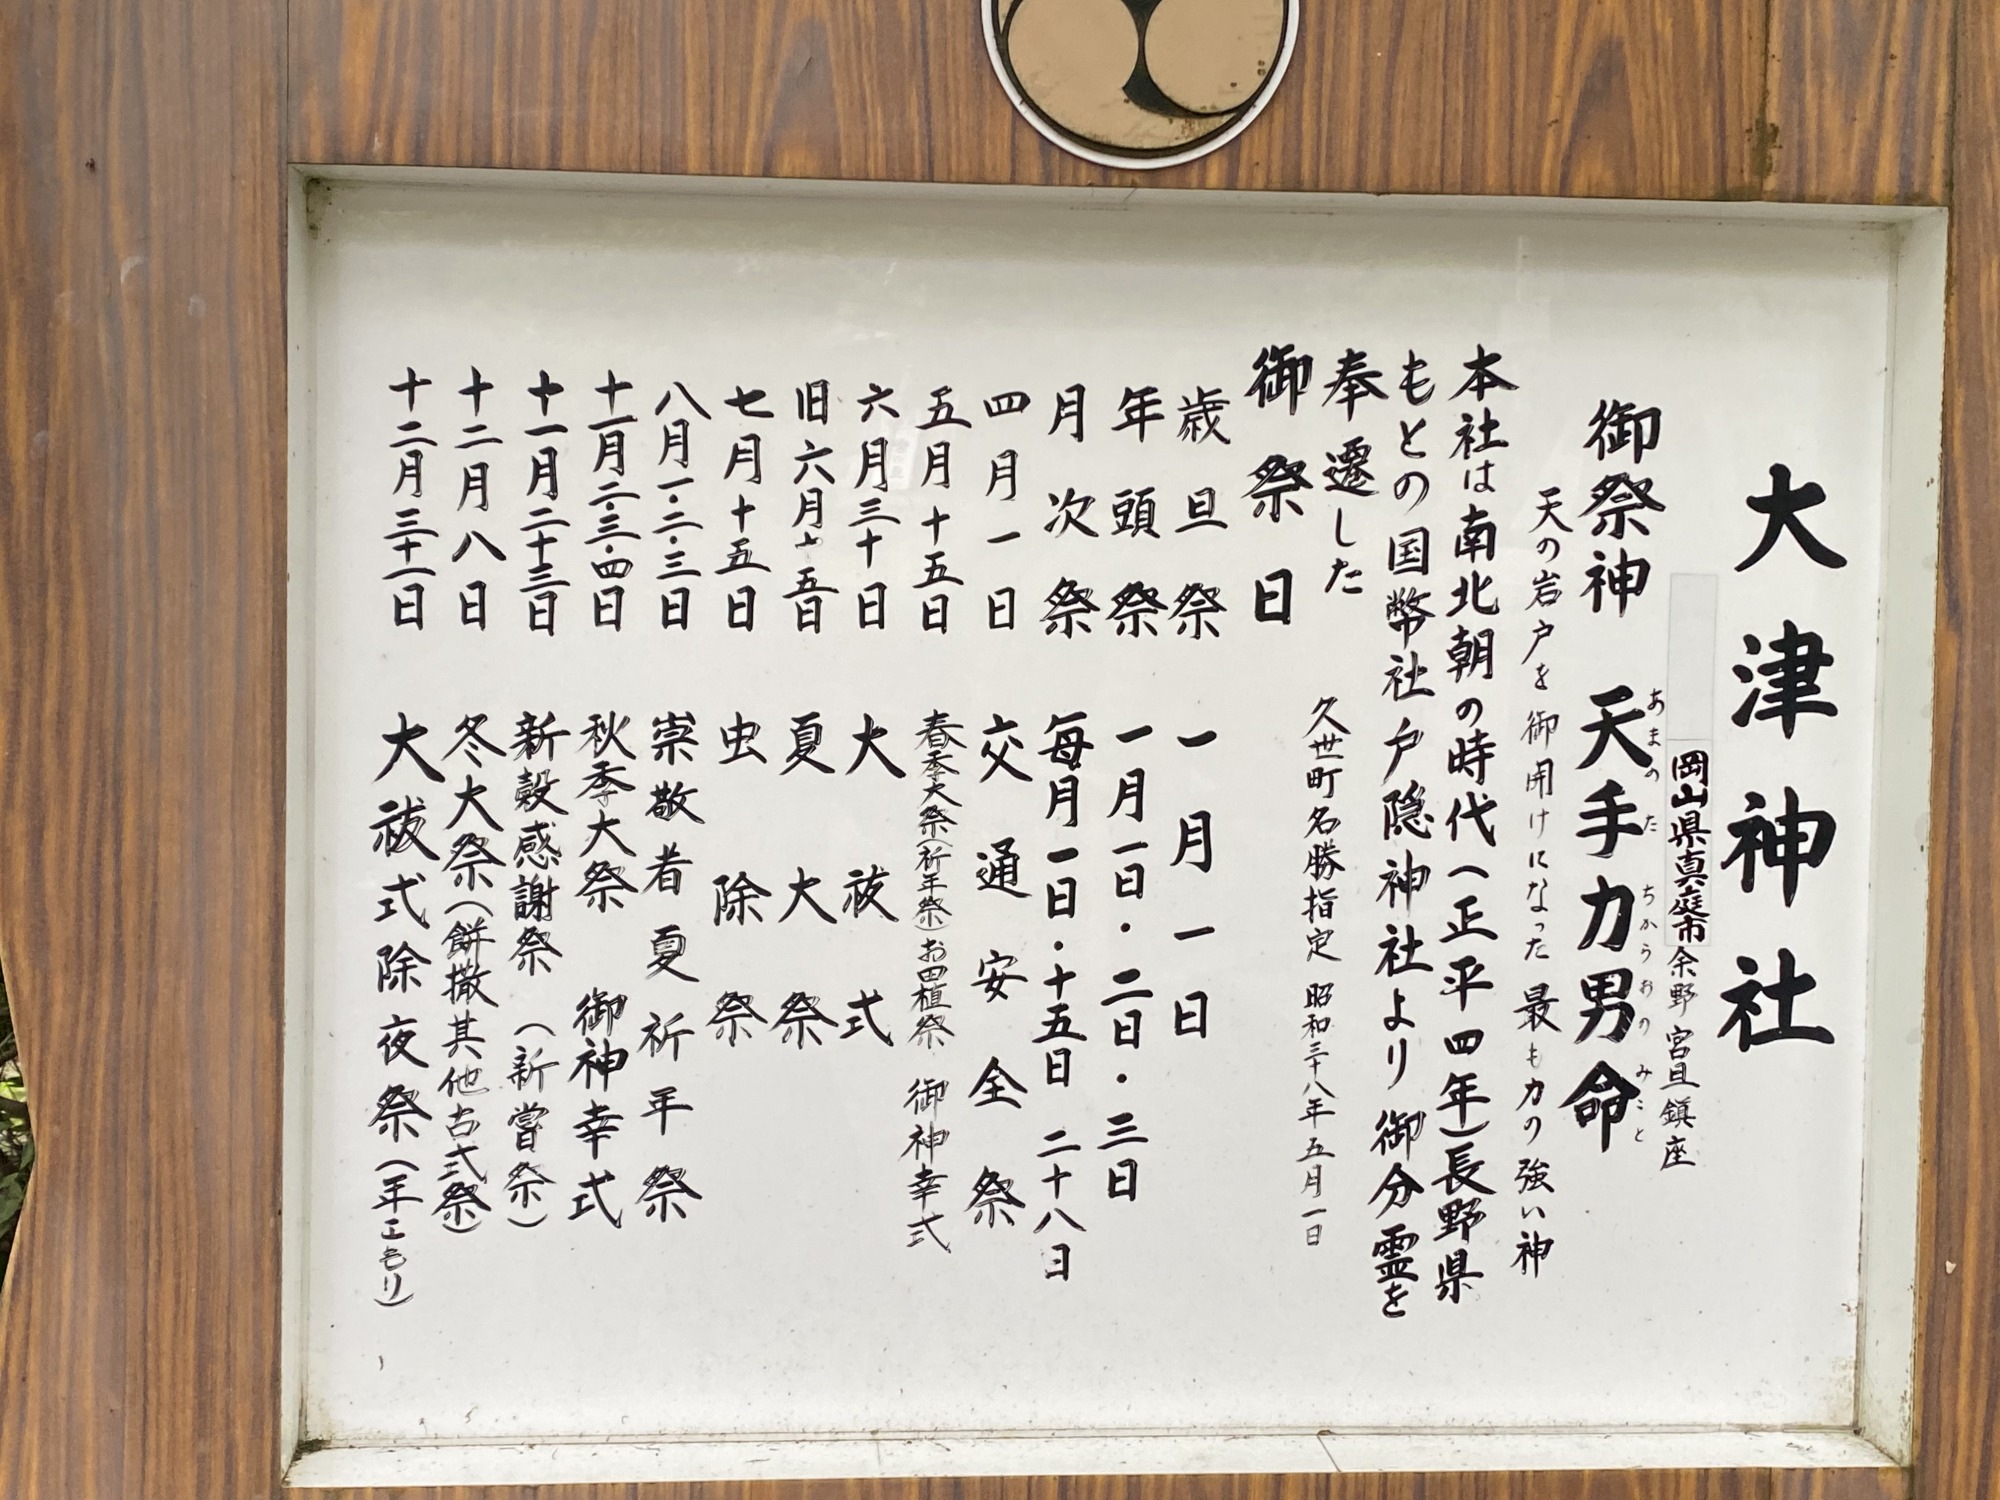 大津神社
岡山県真庭市余野 宮旦鎮座
御祭神 天手力男命
あまのたちからおのみこと
天の岩戸を御開けになった最も力の強い神
本社は南北朝の時代(正平四年)長野県
もとの国幣社戸隠神社より御分霊を
奉遷した
久世町名勝指定 昭和三十八年五月一日
御祭日
歳旦祭 一月一日
年頭祭 一月一日・二日・三日
月次祭 毎月一日・十五日 二十八日
四月一日 交通安全祭
五月十五日 春季大祭(祈年祭)お田植祭 御神幸式
六月三十日 大祓式
旧六月十五日 夏大祭
七月十五日 虫除祭
八月一・二・三日 崇敬者夏祈年祭
十一月二・三・四日 秋季大祭 御神幸式
十一月二十三日 新穀感謝祭 (新嘗祭)
十二月八日 冬大祭(餅撒其他古式祭)
十二月三十一日 大祓式除夜祭(年こもり)